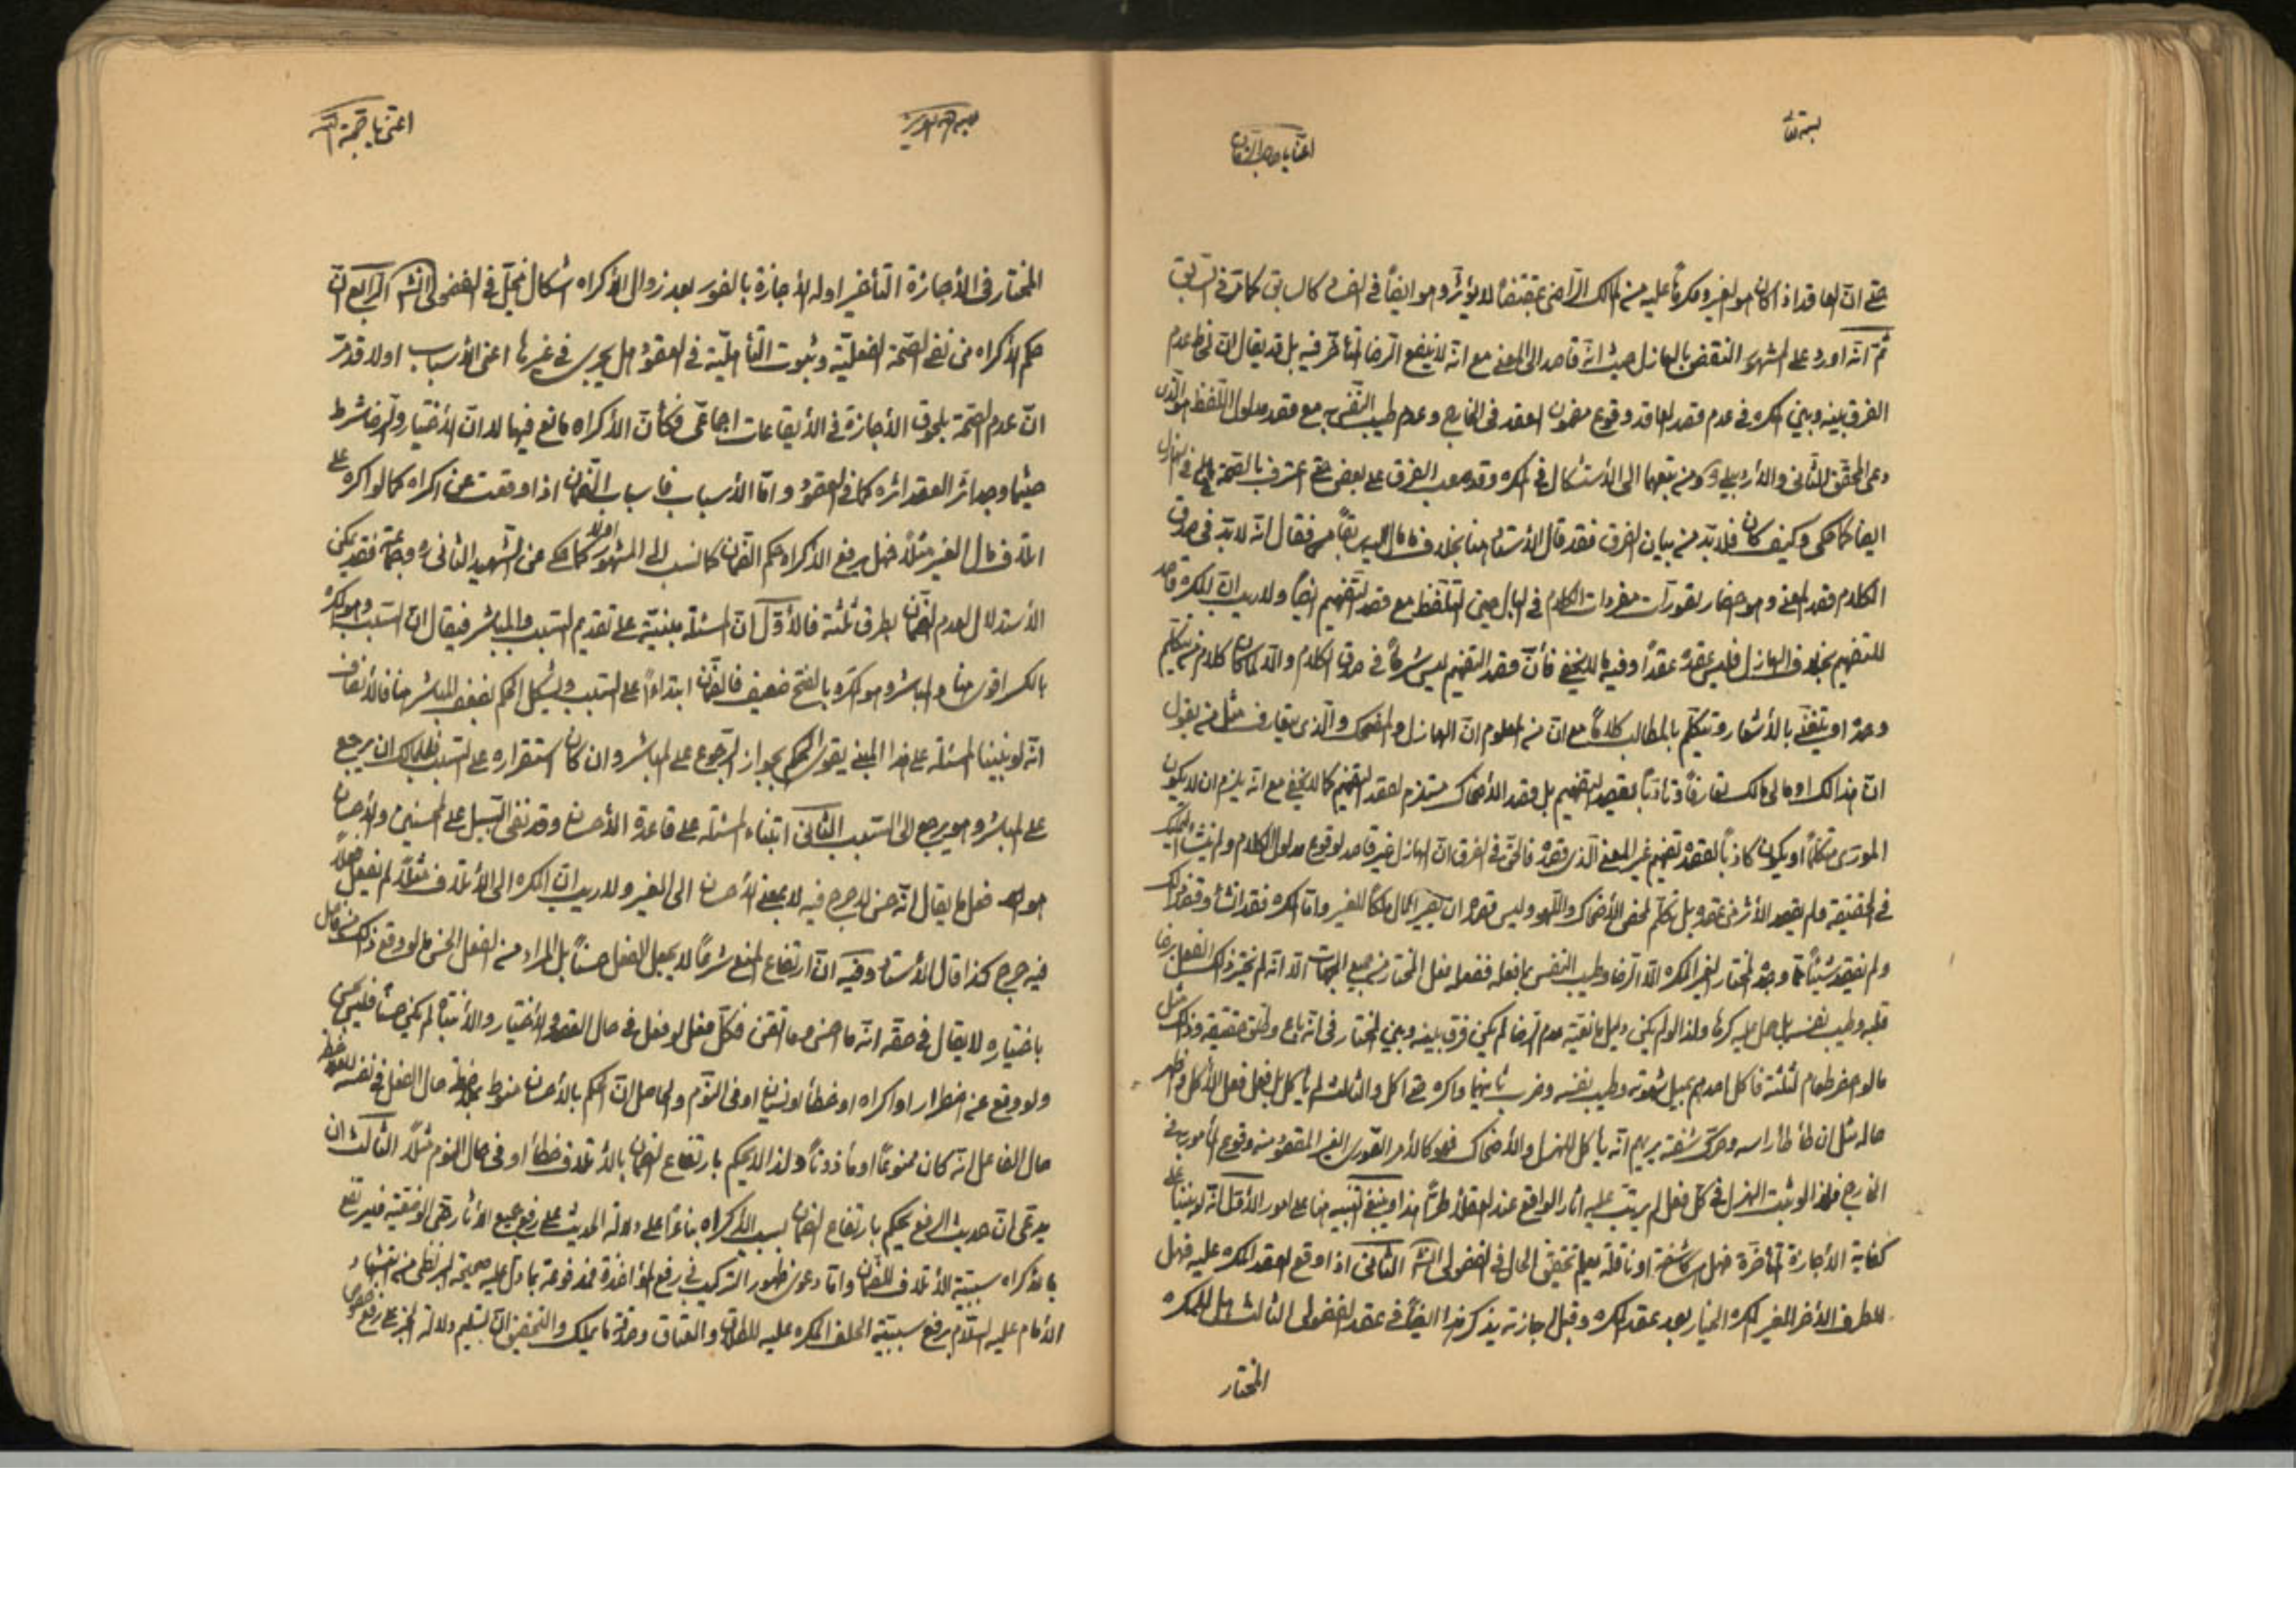 بسمه تعالى
اغثنا يا صاحب الزمان
حتى ان العاقد اذا كان هو الغير ومكرها عليه من المالك الراضى بمقتضاه لا يؤثر وهو ايضا فى كالسابق كما مر فى السابق
ثم انه اورد على المشهور النقض بالهازل حيث انه قاصد الى المعنى مع انه لا ينفع الرضا المتأخر فيه بل قد يقال ان عدم
الفرق بينه وبين المكره فى عدم قصد العاقد وقوع مضمون العقد فى الخارج وعدم طيب النفس به مع قصد مدلول اللفظ هو الذى
دعى المحقق الثانى والاردبيلى ومن تبعهما الى الاستشكال فى المكره وقد صعب الفرق على بعض حتى اعترف بالصحة فى الهازل
ايضا كما حكى وكيف كان فلا بد من بيان الفرق فقد قال الاستاد هنا بخلاف ما فقال انه لا بد فى صدق
الكلام قصد المعنى وهو احضار تصورات مفردات الكلام فى البال حين التلفظ مع قصد التفهيم ايضا ولا ريب ان المكره قاصد
للتفهيم بخلاف الهازل فليس عقده عقدا وفيه ما لا يخفى فان قصد التفهيم ليس شرطا فى صدق الكلام والا لما كان كلام من يتكلم
وحده او يتغنى بالاشعار ويتكلم بالمطالب كلاما مع ان من المعلوم ان الهازل والمضحك والذى يتعارف مثل من يقول
ان هذا لك او مالى مالك تعارفا وتأدبا يقصد التفهيم بل قصد الاضحاك مستلزم لقصد التفهيم كما لا يخفى مع انه يلزم ان لا يكون
المورى متكلما او يكون كاذبا لقصده تفهيم غير المعنى الذى قصده فالحق فى الفرق ان الهازل غير قاصد لوقوع مدلول الكلام ولم ينشأ التمليك
فى الحقيقة ولم يقصد الاثر من عقده بل تكلم لمحض الاضحاك واللهو وليس قصده ان يصير المال ملكا للغير واما المكره فقد انشأ وقصد ذلك
ولم يفقد شيئا مما وجده المختار الغير المكره الا الرضا وطيب النفس بما فعله ففعله فعل المختار من جميع الجهات الا انه لم يختر ذلك الفعل برضا
قلبه وطيب نفسه بل حمل عليه كرها ولذا لو لم يكن دليل مانعية عدم الرضا لم يكن فرق بينه وبين المختار فى انه باع وطلق حقيقة وذلك مثل
ما لو احضر طعام لثلثة فاكل احدهم بميل شهوته وطيب نفسه وضرب ثانيهما واكره حتى اكل والثالث لم يأكل بل فعل فعل الاكل واظهر
حاله مثل ان طأطأ راسه وحرك شفته يريهم انه يأكل للهزل والاضحاك فهو كالامر الصورى الغير المقصود منه وقوع المأمور به فى
الخارج فلذا لو ثبت الهزل فى كل فعل لم يرتب عليه اثار الواقع عند العقلاء طرا هذا وينبغى التنبيه هنا على امور الاول انه لو بنينا على
كفاية الاجازة المتأخرة فهل هى كاشفة او ناقلة يعلم تحقيق الحال فى الفضولى الثانى اذا وقع العقد المكره عليه فهل
للطرف الاخر الغير المكره الخيار بعد عقد المكره وقبل اجازته يذكر هذا ايضا فى عقد الفضولى الثالث هل للمكره
المختار
اغثنى يا حجة الله
المختار فى الاجازة التأخير او له الاجازة بالفور بعد زوال الاكراه اشكال فى الفضولى الرابع ان
حكم الاكراه من نفى الصحة الفعلية وثبوت التأهلية فى العقود هل يجرى فى غيرها اعنى الاسباب او لا قد مر
ان عدم الصحة بلحوق الاجازة فى الايقاعات اجماعى فكأن الاكراه مانع فيها لا ان الاختيار والرضا شرط
حيثما وجد اثر العقد اثره كما فى العقود واما الاسباب فاسباب الضمان اذا وقعت عن اكراه كما لو اكره على
اتلاف مال الغير مثلا فهل يرفع الاكراه حكم الضمان كما نسب الى المشهور اولا كما حكى عن الشهيد الثانى ره وجماعة فقد يمكن
الاستدلال لعدم الضمان بطرق ثلثة فالاول ان المسئلة مبنية على تقديم السبب والمباشر فيقال ان السبب وهو المكره
بالكسر اقوى هنا والمباشر وهو المكره بالفتح ضعيف فالضمان ابتداء على السبب ويشكل الحكم بضعف المباشر هنا فالانصاف
انه لو بنينا المسئلة على هذا المبنى يقوى الحكم بجواز الرجوع على المباشر وان كان استقراره على السبب فللمالك ان يرجع
على المباشر وهو يرجع الى السبب الثانى ابتناء المسئلة على قاعدة الاحسان وقد نفى السبيل على المحسنين والاحسان
هو فعل ما يقال انه حسن لا حرج فيه لا بمعنى الاحسان الى الغير ولا ريب ان المكره الى الاتلاف مثلا لم يفعل فعلا
فيه حرج كذا قال الاستاد وفيه ان ارتفاع المنع شرعا لا يجعل الفعل حسنا بل المراد من الفعل الحسن ما لو وقع ذلك من فاعل
باختياره لا يقال فى حقه انه ما احسن وما اتقن فكل فعل لو فعل فى حال القصد والاختيار والانتباه لم يكن حسنا فليس بحسن
ولو وقع عن اضطرار او اكراه او خطأ او نسيان او فى النوم والحاصل ان الحكم بالاحسان منوط بملاحظة حال الفعل فى نفسه
حال الفاعل انه كان ممنوعا او مأذونا ولذا لا يحكم بارتفاع الضمان بالاتلاف خطأ او فى حال النوم مثلا الثالث ان
يدعى ان حديث الرفع يحكم بارتفاع الضمان بسبب الاكراه بناء على دلالة الحديث على رفع جميع الاثار حتى الوضعية فيرتفع
بالاكراه سببية الاتلاف للضمان واما دعوى ظهور التركيب فى رفع المؤاخذة فمدفوعة بما دل عليه صحيحة البزنطى من استشهاد
الامام عليه السلام برفع سببية الحلف المكره عليه للطلاق والعتاق وصدقة ما يملك والتحقيق ان تسليم دلالة الخبر على رفع